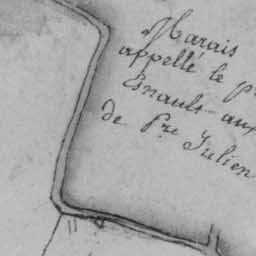 Marais
appellé le p
Enault aux
de Pre Julien